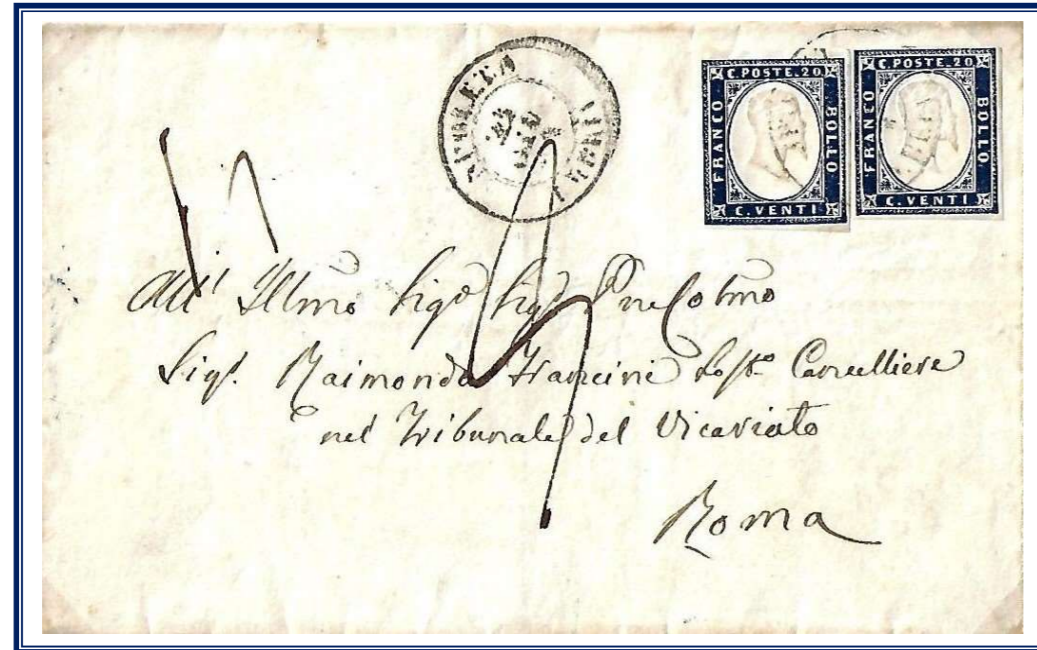 C. POSTE. 20
FRANCO
BOLLO
C. VENTI
C. POSTE. 20
FRANCO
BOLLO
C. VENTI
All' Illmo Sigr Sigr Pne Colmo
Sigr. Raimondo Francini Cancelliere
nel Tribunale del Vicariato
Roma